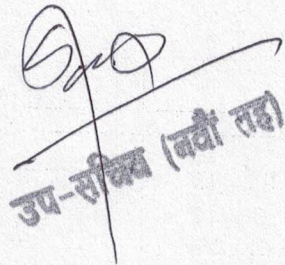 उप-सचिव (नवीं तह)